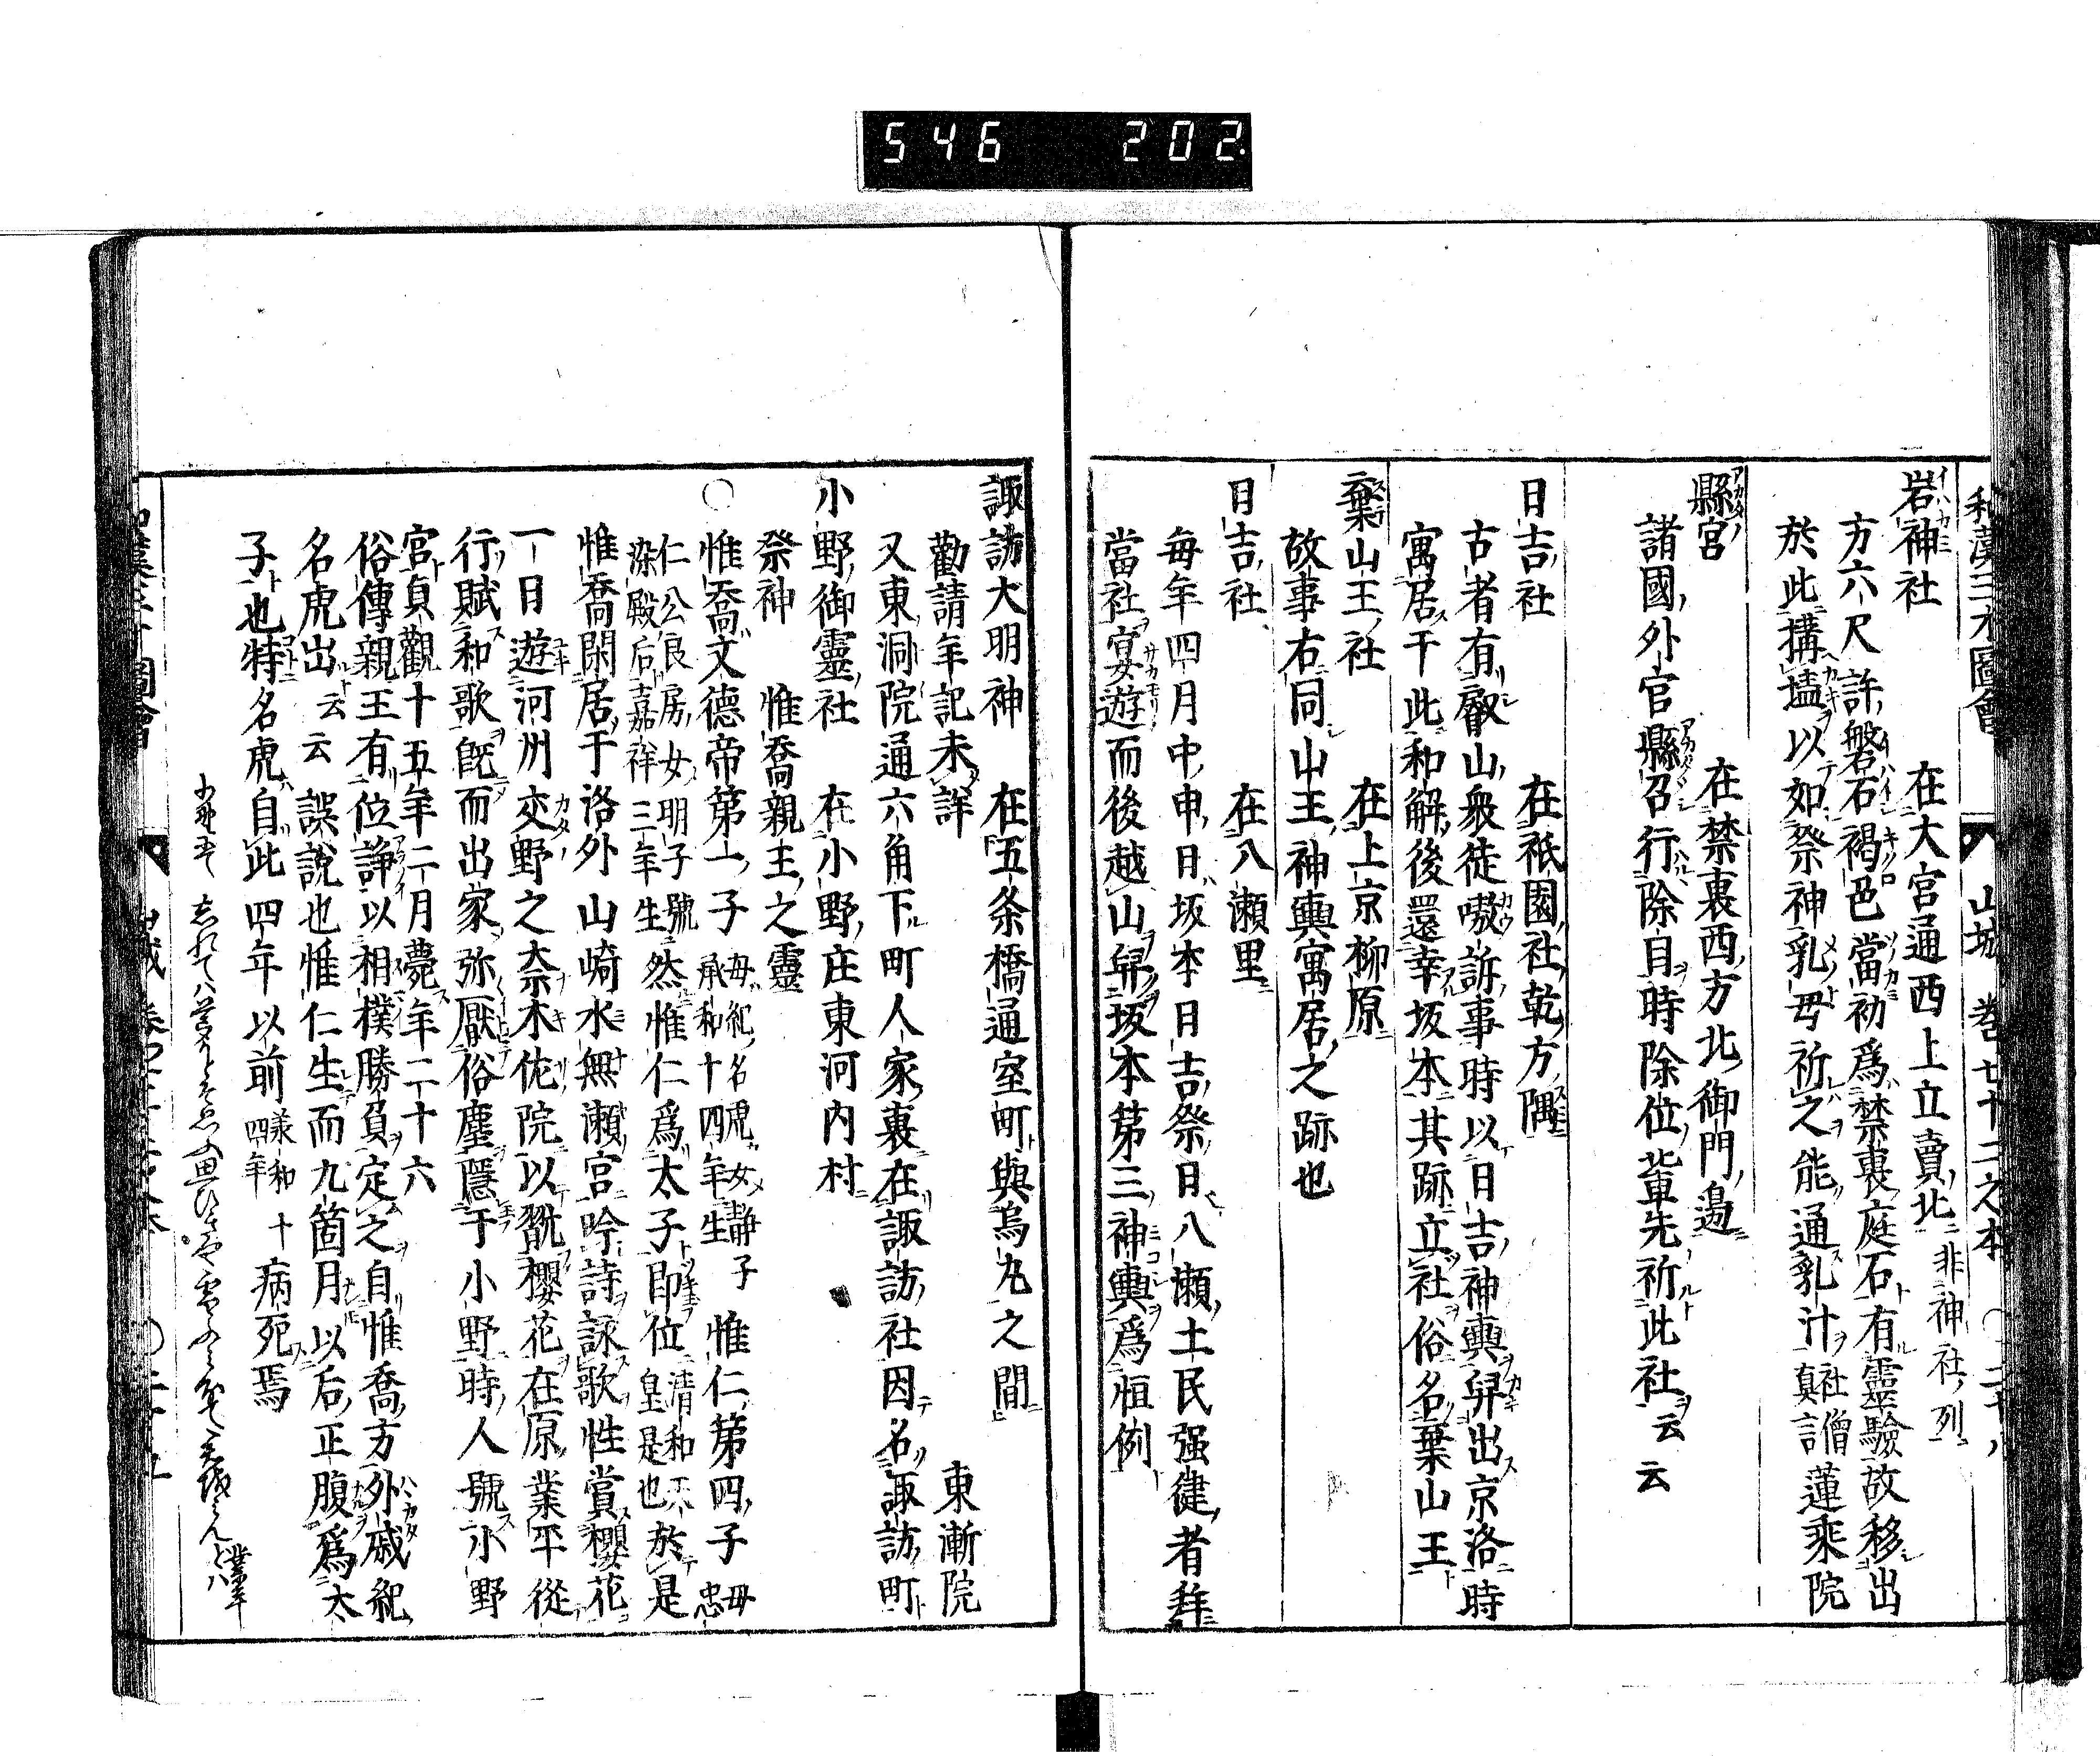 546 202
和漢三才圖會 山城 卷七十二之本 ○二十八
岩神社 在大宮通西上立賣北 非神社列
方六尺許磐石褐色當初爲禁裏庭石有靈驗故移出
於此搆𡏄以如祭神乳母祈之能通乳汁 社僧眞言 蓮乘院
縣宮 在禁裏西方北御門邊
諸國外官縣召行除目時除位輩先祈此社云云
日吉社 在祇園社乾方隅
古者有叡山衆徒嗷訴事時以日吉神輿舁出京洛時
寓居于此和解後還幸坂本其跡立社俗名棄山王
棄山王社 在上京柳原
故事右同山王神輿寓居之跡也
日吉社 在八瀬里
毎年四月中申日坂本日吉祭日八瀬土民强健者群
當社宴遊而後越山舁坂本第三神輿爲恒例
諏訪大明神 在五条橋通室町與烏丸之間
勸請年記未詳 東漸院
又東洞院通六角下町人家裏在諏訪社因名諏訪町
小野御靈社 在小野庄東河内村
祭神 惟喬親王之靈
○惟喬文德帝第一子 母紀名虎女靜子 承和十四年生 惟仁第四子 母忠
仁公良房女明子號 染殿后嘉祥三年生 然惟仁爲太子即位 清和天 皇是也 於是
惟喬閑居于洛外山崎水無瀬宮吟詩詠歌性賞櫻花
一日遊河州交野之奈木佐院以翫櫻花在原業平從
行賦和歌旣而出家弥厭俗塵隱于小野時人號小野
宮貞觀十五年二月薨年二十六
俗傳親王有位諍以相撲勝負定之自惟喬方外戚紀
名虎出云云誤說也惟仁生而九箇月以后正腹爲太
子也特名虎自此四年以前 承和 十四年 病死焉
業平